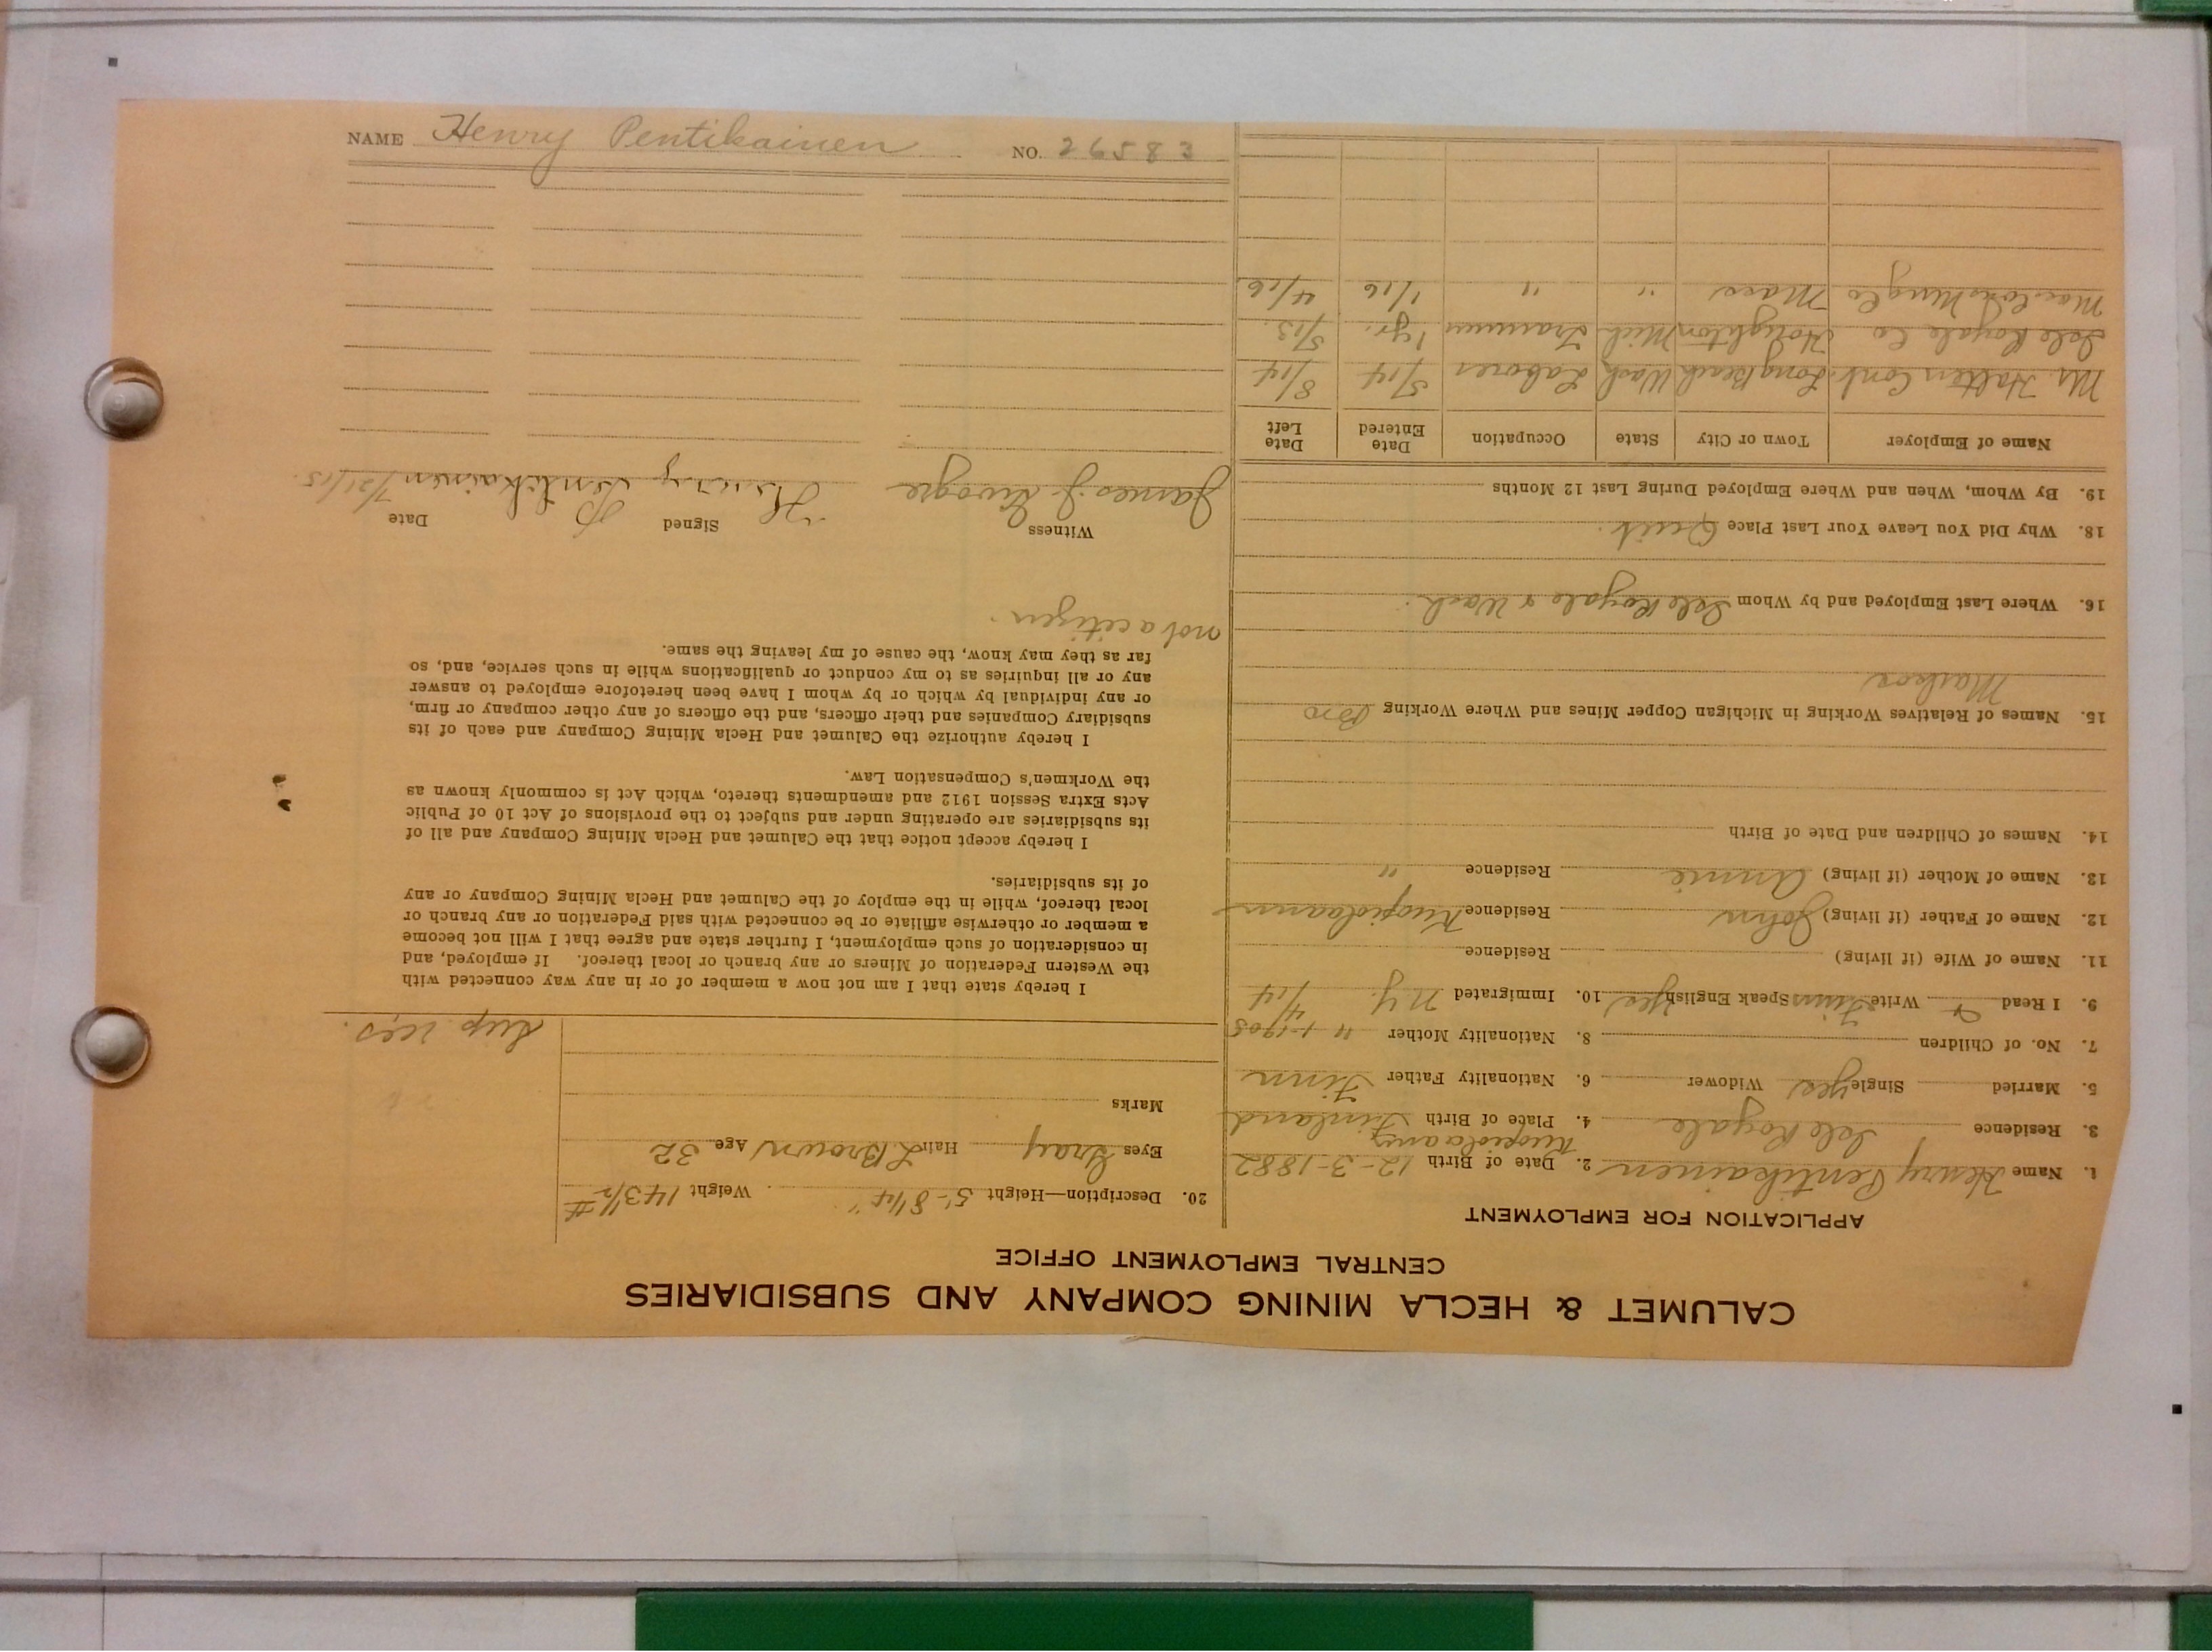 NAME Henry Pentikainen NO. 26583
CALUMET & HECLA MINING COMPANY AND SUBSIDIARIES
CENTRAL EMPLOYMENT OFFICE
APPLICATION FOR EMPLOYMENT
1. Name Henry Pentikainen 2. Date of Birth 12-3-1882
3. Residence Isle Royale 4. Place of Birth Finland
5. Married Single yes Widower 6. Nationality Father Finn
7. No. of Children 8. Nationality Mother " 4-1905
9. I Read & Write Finn Speak English yes 10. Immigrated N.Y. 4/14
11. Name of Wife (if living) Residence
12. Name of Father (if living) John Residence
13. Name of Mother (if living) Annie Residence "
14. Names of Children and Date of Birth
15. Names of Relatives Working in Michigan Copper Mines and Where Working Bro
16. Where Last Employed and by Whom Isle Royale & Wash.
18. Why Did You Leave Your Last Place Quit.
19. By Whom, When and Where Employed During Last 12 Months
Name of Employer Town or City State Occupation Date Entered Date Left
Long Beach Wash Laborer 5/14 8/14
Isle Royale Co Houghton Mich Trammer 1 yr. 5/13.
Mass " " 1/16 4/16.
20. Description—Height 5'-8 1/4" Weight 143 1/2 #
Eyes Gray Hair L Brown Age 32
Marks
I hereby state that I am not now a member of or in any way connected with
the Western Federation of Miners or any branch or local thereof. If employed, and
in consideration of such employment, I further state and agree that I will not become
a member or otherwise affiliate or be connected with said Federation or any branch or
local thereof, while in the employ of the Calumet and Hecla Mining Company or any
of its subsidiaries.
I hereby accept notice that the Calumet and Hecla Mining Company and all of
its subsidiaries are operating under and subject to the provisions of Act 10 of Public
Acts Extra Session 1912 and amendments thereto, which Act is commonly known as
the Workmen's Compensation Law.
I hereby authorize the Calumet and Hecla Mining Company and each of its
subsidiary Companies and their officers, and the officers of any other company or firm,
or any individual by which or by whom I have been heretofore employed to answer
any or all inquiries as to my conduct or qualifications while in such service, and, so
far as they may know, the cause of my leaving the same.
not a citizen.
Witness Signed Date
James J. Henry Pentikainen 7/21/15.